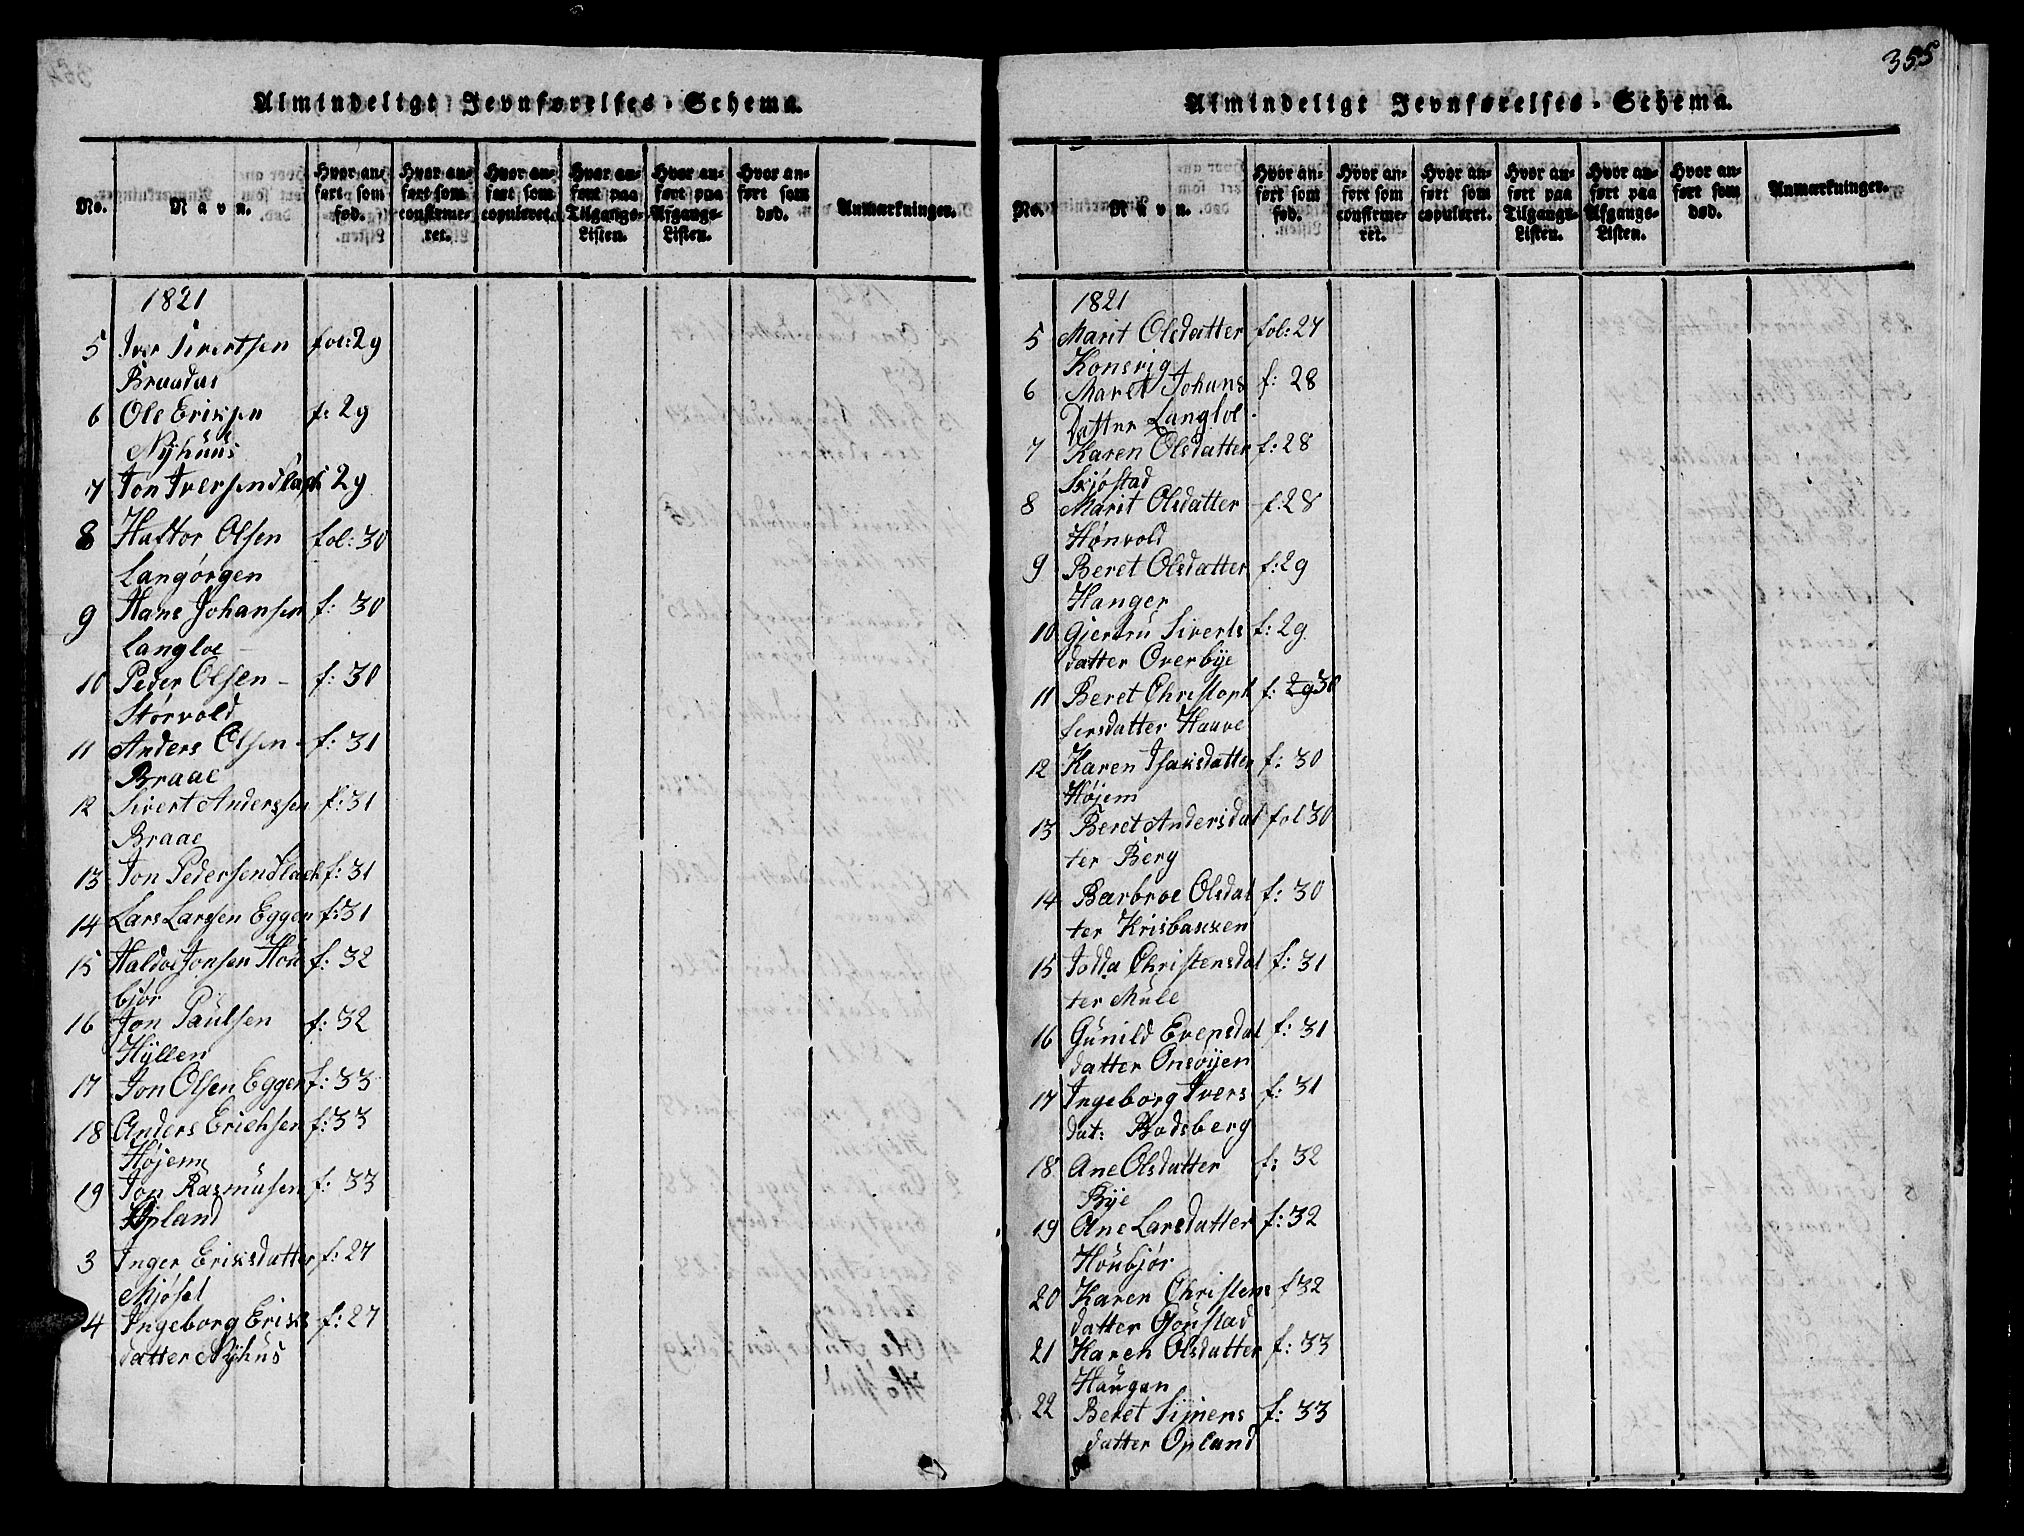 Almindeligt Jevnførelses-Schema.
No.
Navn.
Hvor anført som fød.
Hvor anført som confirmeret.
Hvor anført som copuleret.
Hvor anført paa Tilgangs-Listen.
Hvor anført paa Afgangs-Listen.
Hvor anført som død.
Anmærkninger.
1821
5 Iver Sivertsen fol: 29
Braadas
6 Ole Eriksen f: 29
Nÿhuus
7 Jon Iversen 29
8 Hattor Olsen fol: 30
Langørgen
9 Hans Johansen f: 30
Langloe
10 Peder Olsen - f: 30
Størvold
11 Anders Olsen - f: 31
Braae
12 Sivert Anderssen f: 31
Braae
13 Jon Pedersen f: 31
14 Lars Larssen Eggen f: 31
15 Jonsen Hou f: 32
bjør
16 Jon Paulsen f: 32
Hÿllen
17 Jon Olsen Eggen f: 33
18 Anders Erichsen f: 33
Højem
19 Jon Rasmusen f: 33
Opland
3 Inger Eriksdatter f: 27
Mjøsel
4 Ingeborg Eriks f: 27
datter Nÿhus
355
Almindeligt Jevnførelses-Schema.
No.
Navn.
Hvor anført som fød.
Hvor anført som confirmeret.
Hvor anført som copuleret.
Hvor anført paa Tilgangs-Listen.
Hvor anført paa Afgangs-Listen.
Hvor anført som død.
Anmærkninger.
1821
5 Marit Olsdatter fol: 27
Konsvig
6 Maret Johans f: 28
Datter Langloe
7 Karen Olsdatter f: 28
Skjøstad
8 Marit Olsdatter f: 28
Hønvold
9 Beret Olsdatter f: 29
Hanger
10 Gjertru Siverts f: 29
datter Overbÿe
11 Beret Christoph f: 29 30
fersdatter Haave
12 Karen Isaksdatter f: 30
Højem
13 Beret Andersdat fol 30
ter Berg
14 Barbroe Olsdat f: 30
ter Krisbakken
15 Jodda Christensdat f: 31
ter Mule
16 Gunild Evensdat f: 31
datter Onsøijen
17 Ingeborg Ivers f: 31
dat: Rodsberg
18 Ane Olsdatter f: 32
Bÿe
19 Ane Larsdatter f: 32
Houbjør
20 Karen Christens f 32
datter Gonstad
21 Karen Olsdatter f: 33
Haugan
22 Beret Simens f: 33
datter Opland